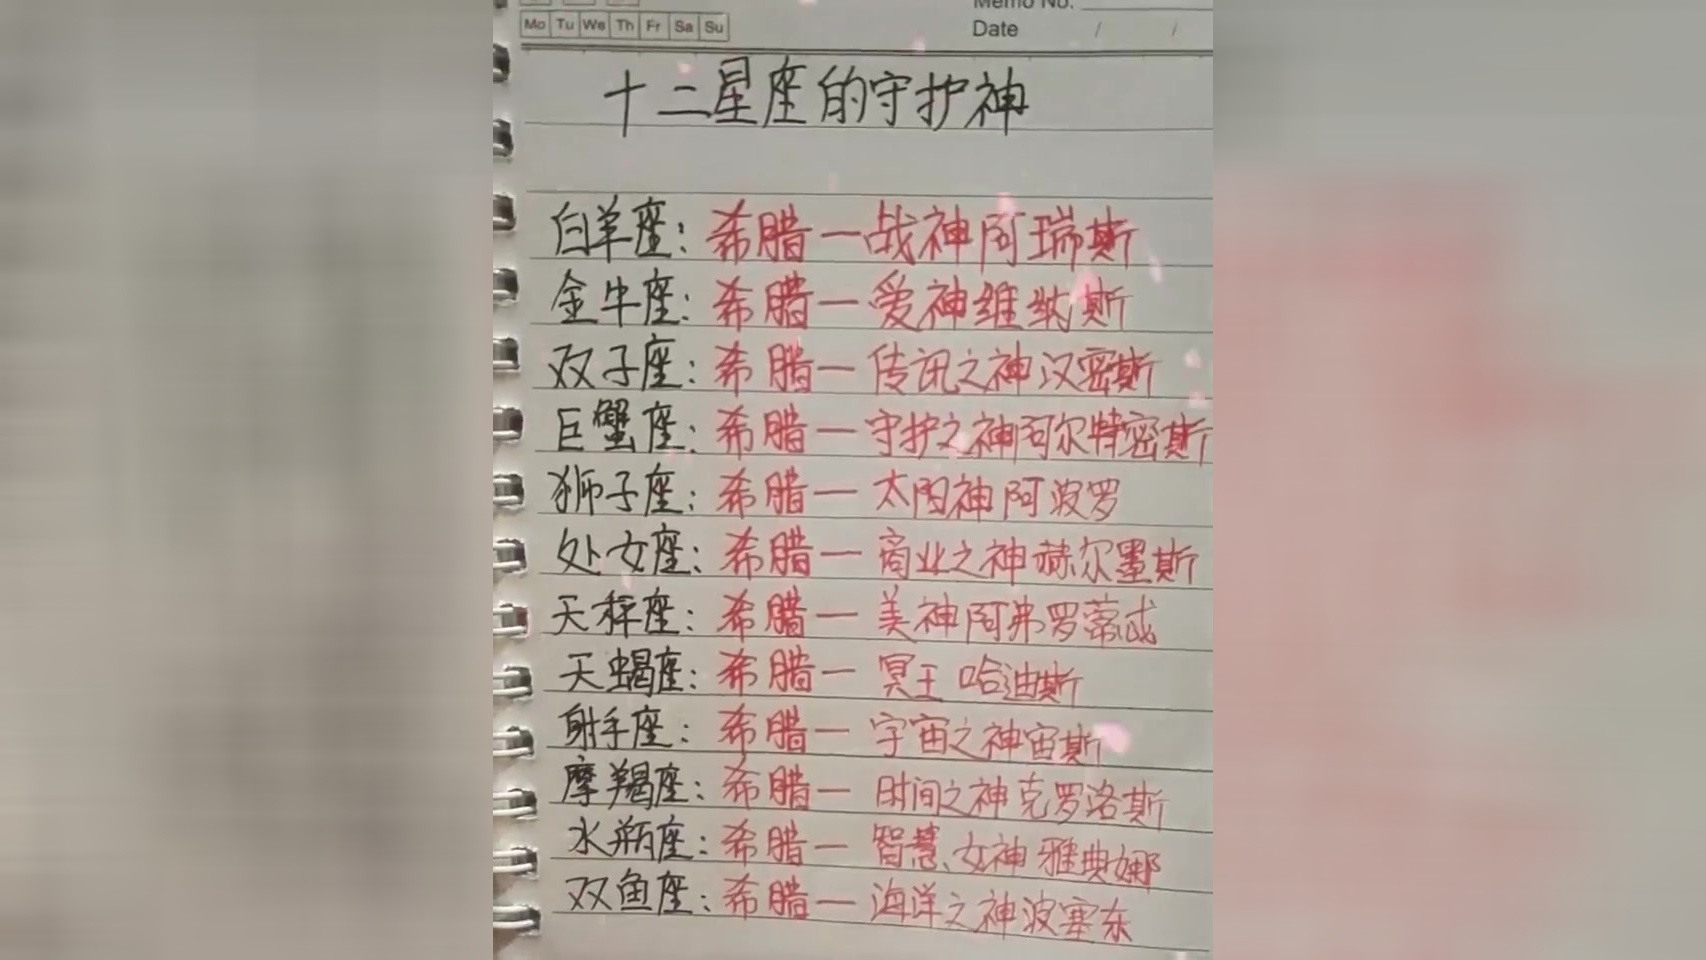 Memo No.
Mo Tu We Th Fr Sa Su
Date / /
十二星座的守护神
白羊座：希腊一战神阿瑞斯
金牛座：希腊一爱神维纳斯
双子座：希腊一传讯之神汉密斯
巨蟹座：希腊一守护之神阿尔特密斯
狮子座：希腊一太阳神阿波罗
处女座：希腊一商业之神赫尔墨斯
天秤座：希腊一美神阿弗罗蒂忒
天蝎座：希腊一冥王哈迪斯
射手座：希腊一宇宙之神宙斯
摩羯座：希腊一时间之神克罗洛斯
水瓶座：希腊一智慧女神雅典娜
双鱼座：希腊一海洋之神波塞东